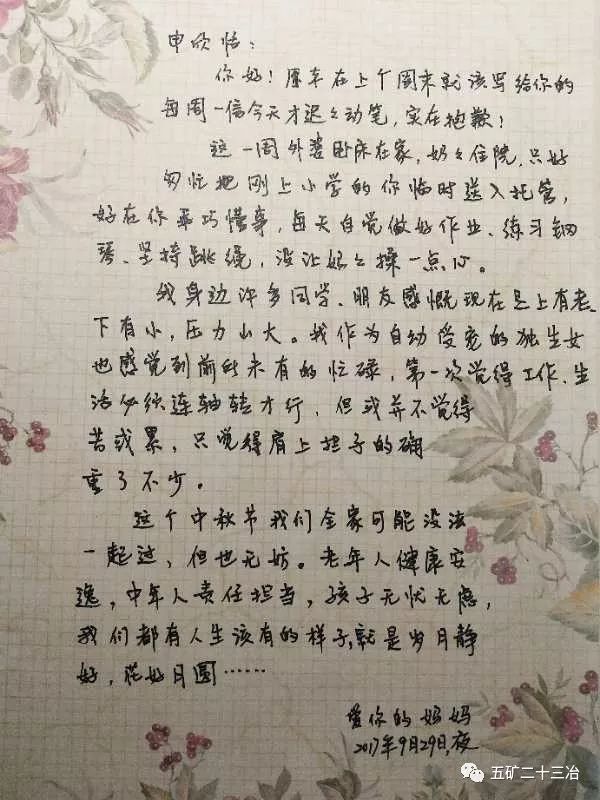 申欣恬:
你好!原本在上个周末就该写给你的
每周一信今天才迟々动笔,实在抱歉!
这一周外婆卧床在家,奶々住院,只好
匆忙把刚上小学的你临时送入托管,
好在你乖巧懂事,每天自觉做好作业、练习钢
琴、坚持跳绳,没让妈々操一点心。
我身边许多同学、朋友感慨现在是上有老、
下有小,压力山大。我作为自幼受宠的独生女
也感觉到前所未有的忙碌,第一次觉得工作、生
活必须连轴转才行,但我并不觉得
苦或累,只觉得肩上担子的确
重了不少。
这个中秋节我们全家可能没法
一起过,但也无妨。老年人健康安
逸,中年人责任担当,孩子无忧无虑,
我们都有人生该有的样子,就是岁月静
好,花好月圆……
爱你的妈妈
2017年9月29日,夜
五矿二十三冶